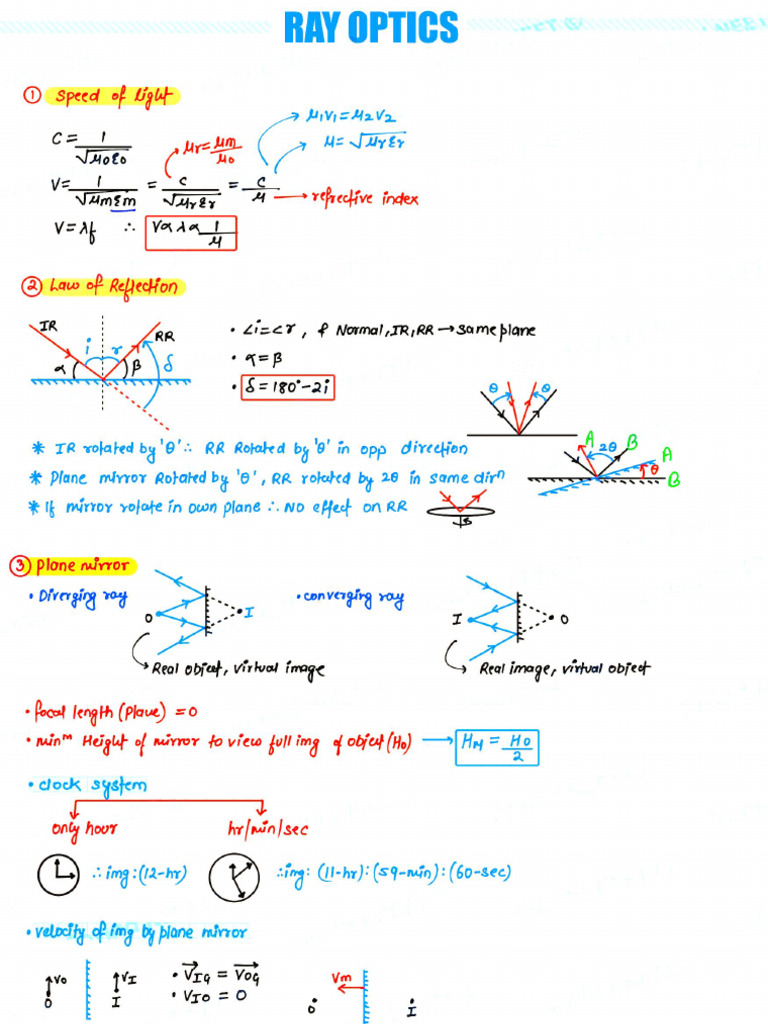 RAY OPTICS
① Speed of light
C = 1/√μ0ε0
μr = μm/μ0
μ1V1 = μ2V2
μ = √μrεr
V = 1/√μmεm = c/√μrεr = c/μ → refrective index
V = λf ∴ V∝ λ ∝ 1/μ
② Law of Reflection
IR i r RR α β δ
• ∠i = ∠r , & Normal, IR, RR → same plane
• α = β
• δ = 180° - 2i
θ θ
* IR rotated by 'θ' ∴ RR Rotated by 'θ' in opp direction
* Plane mirror Rotated by 'θ', RR rotated by 2θ in same dirn
* If mirror rotate in own plane ∴ No effect on RR
A 2θ B A θ B
③ Plane mirror
• Diverging ray
O I
• converging ray
I O
Real object, virtual image
Real image, virtual object
• focal length (Plave) = 0
• minm Height of mirror to view full img of object (Ho) → HM = Ho/2
• clock system
only hour
hr/min/sec
∴ img: (12-hr)
∴ img: (11-hr) : (59-min) : (60-sec)
• velocity of img by plane mirror
Vo O VI I
• VIG = VOG
• VIO = 0
Vm
O I